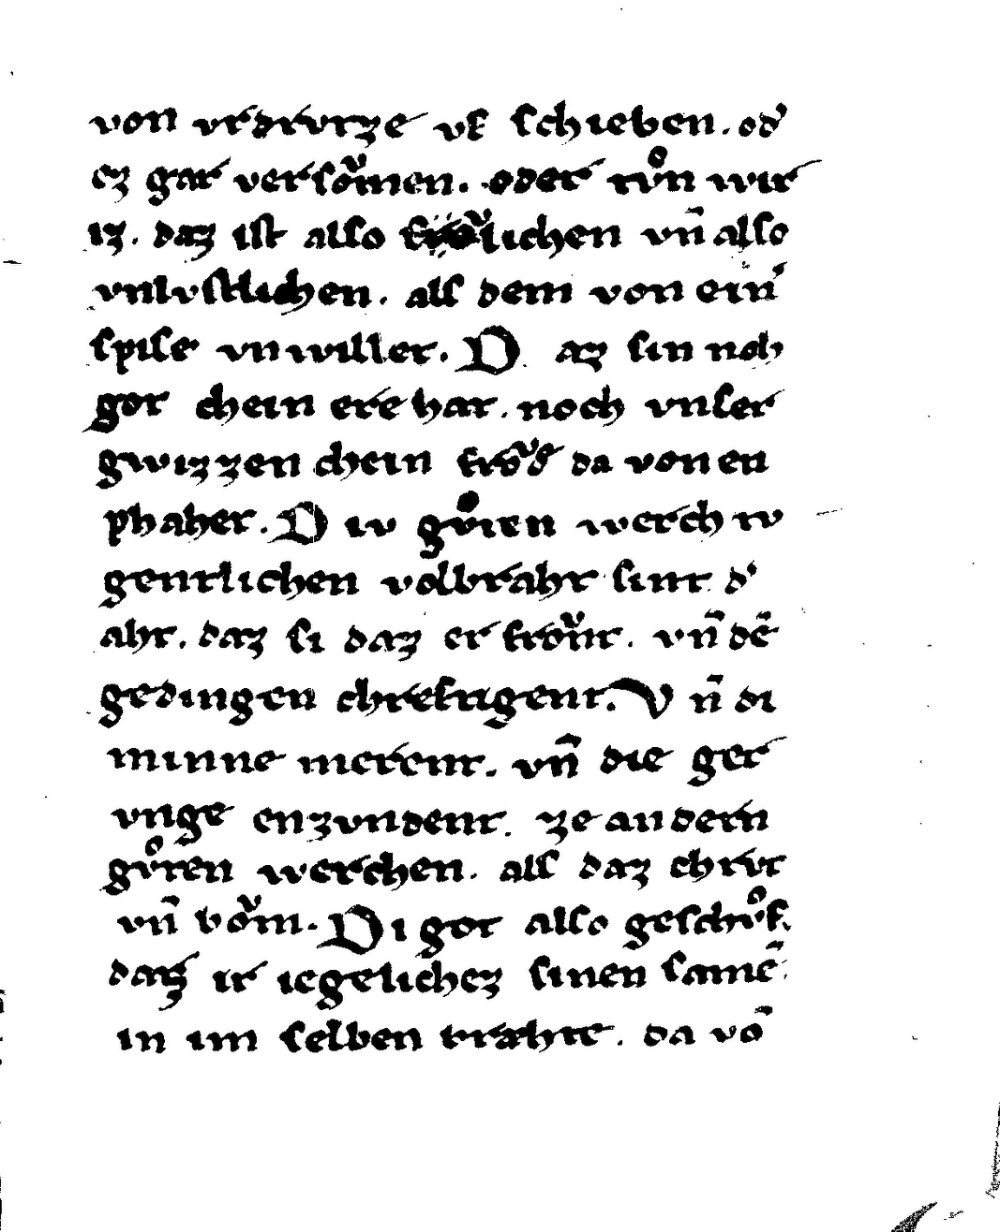 von vrdrvtze vf schieben. od᾽
ez gar versoͮmen. oder tvͦn wir
iz. daz ist also lichen vn̄ also
vnlvstlichen. als dem von ein᾽
spise vnwillet. D az sin noh
got chein ere hat. noch vnser
gwizzen chein froͮde da von en
phahet. D iv gvͦten werch iv
gentlichen volbraht sint d᾽
aht. daz si daz er froͮnt. vn̄ dē
gedingen chreftigent. V n̄ di
minne merent. vn̄ die ger
vnge enzvndent. ze andern
gvͦten werchen. als daz chrvt
vn̄ boͮm. Di got also geschvͦf.
daz ir iegelichez sinen samē
in im selben trahte. da vō